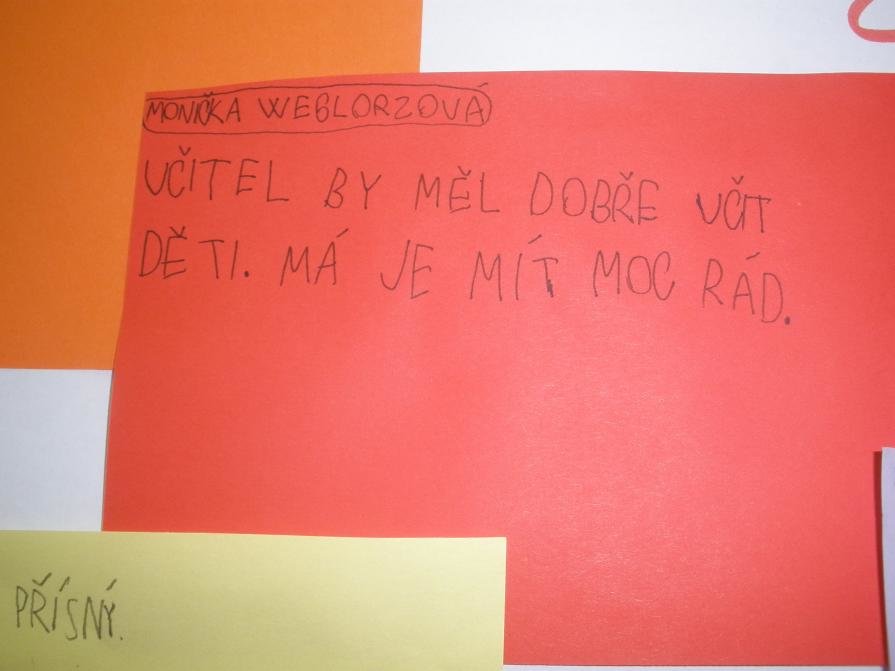 MONIČKA WEGLORZOVÁ
UČITEL BY MĚL DOBŘE UČIT
DĚTI. MÁ JE MÍT MOC RÁD.
PŘÍSNÝ.